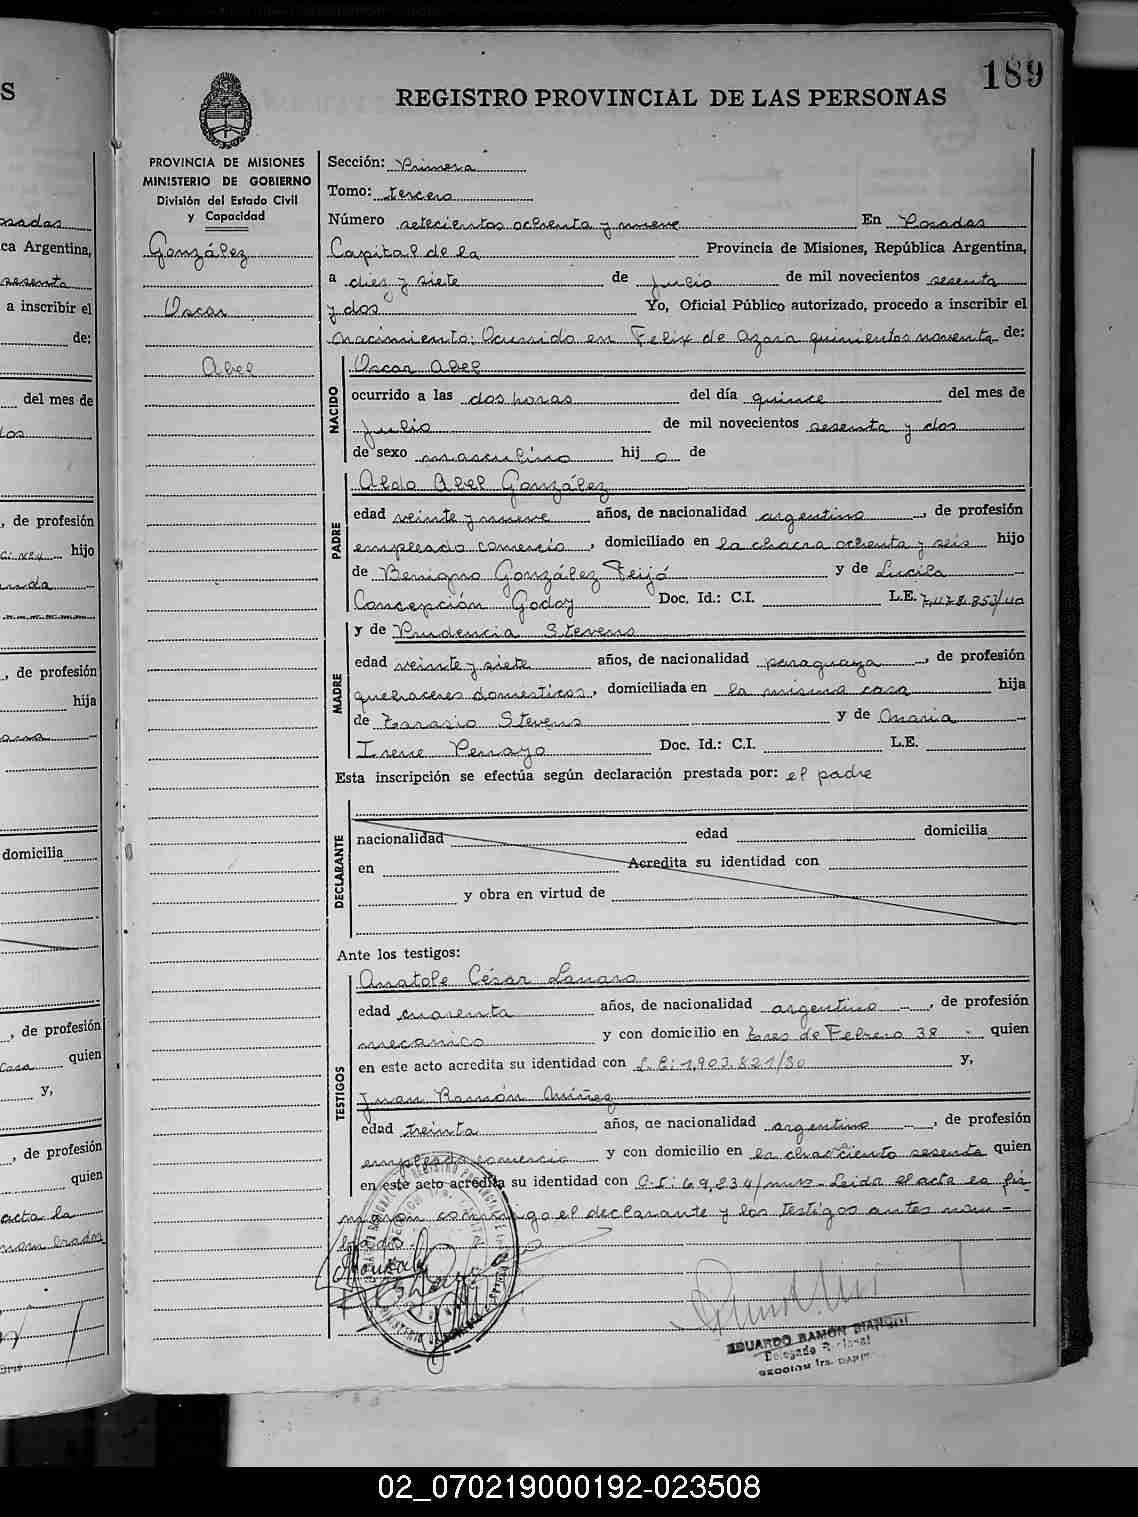 189
REGISTRO PROVINCIAL DE LAS PERSONAS
PROVINCIA DE MISIONES
MINISTERIO DE GOBIERNO
División del Estado Civil
y Capacidad
González
Oscar
Abel
Sección: Primera
Tomo: tercero
Número setecientos ochenta y nueve En Posadas
Capital de la Provincia de Misiones, República Argentina,
a diez y siete de julio de mil novecientos sesenta
y dos Yo, Oficial Público autorizado, procedo a inscribir el
nacimiento: Ocurrido en Felix de Azara quinientos noventa de:
NACIDO
Oscar Abel
ocurrido a las dos horas del día quince del mes de
julio de mil novecientos sesenta y dos
de sexo masculino hijo de
PADRE
Aldo Abel González
edad veinte y nueve años, de nacionalidad argentino, de profesión
empleado comercio, domiciliado en la chacra ochenta y seis hijo
de Benigno González Feijó y de Lucila
Concepción Godoy Doc. Id.: C.I. L.E. 7.478.853/40
y de Prudencia Stevens
MADRE
edad veinte y siete años, de nacionalidad paraguaya, de profesión
quehaceres domesticos, domiciliada en la misma casa hija
de Tarasio Stevens y de Maria
Irene Doc. Id.: C.I. L.E.
Esta inscripción se efectúa según declaración prestada por: el padre
DECLARANTE
nacionalidad edad domicilia
en Acredita su identidad con
y obra en virtud de
Ante los testigos:
TESTIGOS
Anatole César
edad cuarenta años, de nacionalidad argentino, de profesión
mecanico y con domicilio en tres de Febrero 38 - quien
en este acto acredita su identidad con L.E: 1.903.821/30 y,
Juan Ramón Núñez
edad treinta años, de nacionalidad argentino, de profesión
empleado comercio y con domicilio en la chac. ciento sesenta quien
en este acto acredita su identidad con C.I: 69,834/mns - Leida el acta la fir
maron conmigo el declarante y los testigos antes nom-
brados.
EDUARDO RAMÓN
Delegado
SECCION 1ra.
02_070219000192-023508